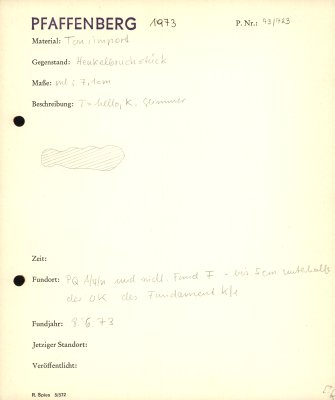 PFAFFENBERG 1973 P. Nr.: 93/723
Material: Ton, import
Gegenstand: Henkelbruchstück
Maße: ml: 7,1cm
Beschreibung: T: hell, K. Glimmer
Zeit:
Fondort: PQ und nördl. Fund I - bis 5cm unterhalb
der OK des Fundament
Fundjahr: 8.6.73
Jetziger Standort:
Veröffentlicht:
R. Spies 5/572